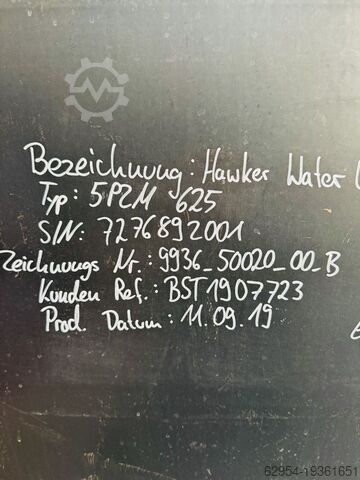 Bezeichnung: Hawker Water
Typ: 5PZM 625
S/N: 7276892001
Zeichnungs Nr.: 9936_50020_00_B
Kunden Ref.: BST1907723
Prod. Datum: 11.09.19
62954-19361651